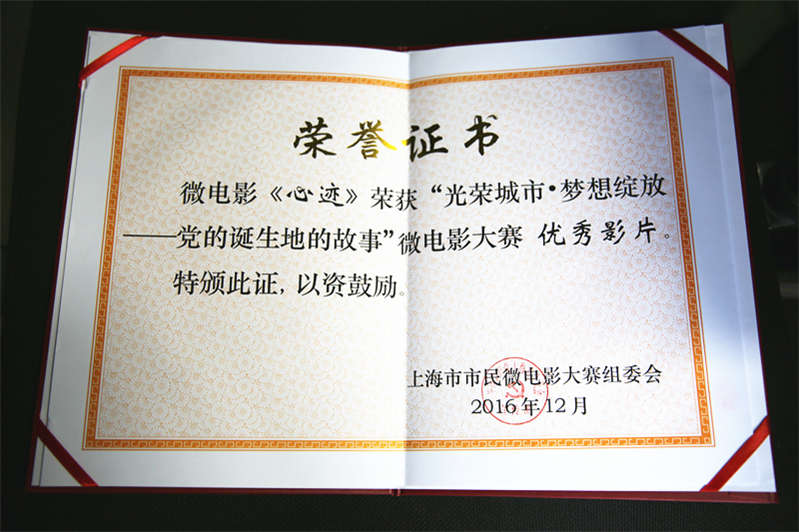 荣誉证书
微电影《心迹》荣获“光荣城市·梦想绽放
——党的诞生地的故事”微电影大赛 优秀影片。
特颁此证，以资鼓励。
上海市市民微电影大赛组委会
2016年12月